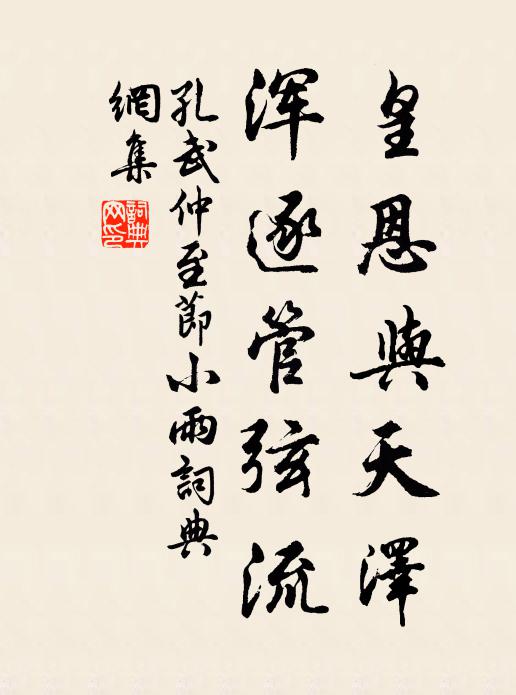 皇恩與天澤
浑逐管弦流
孔武仲至節小雨詞典
網集
詞典
网印